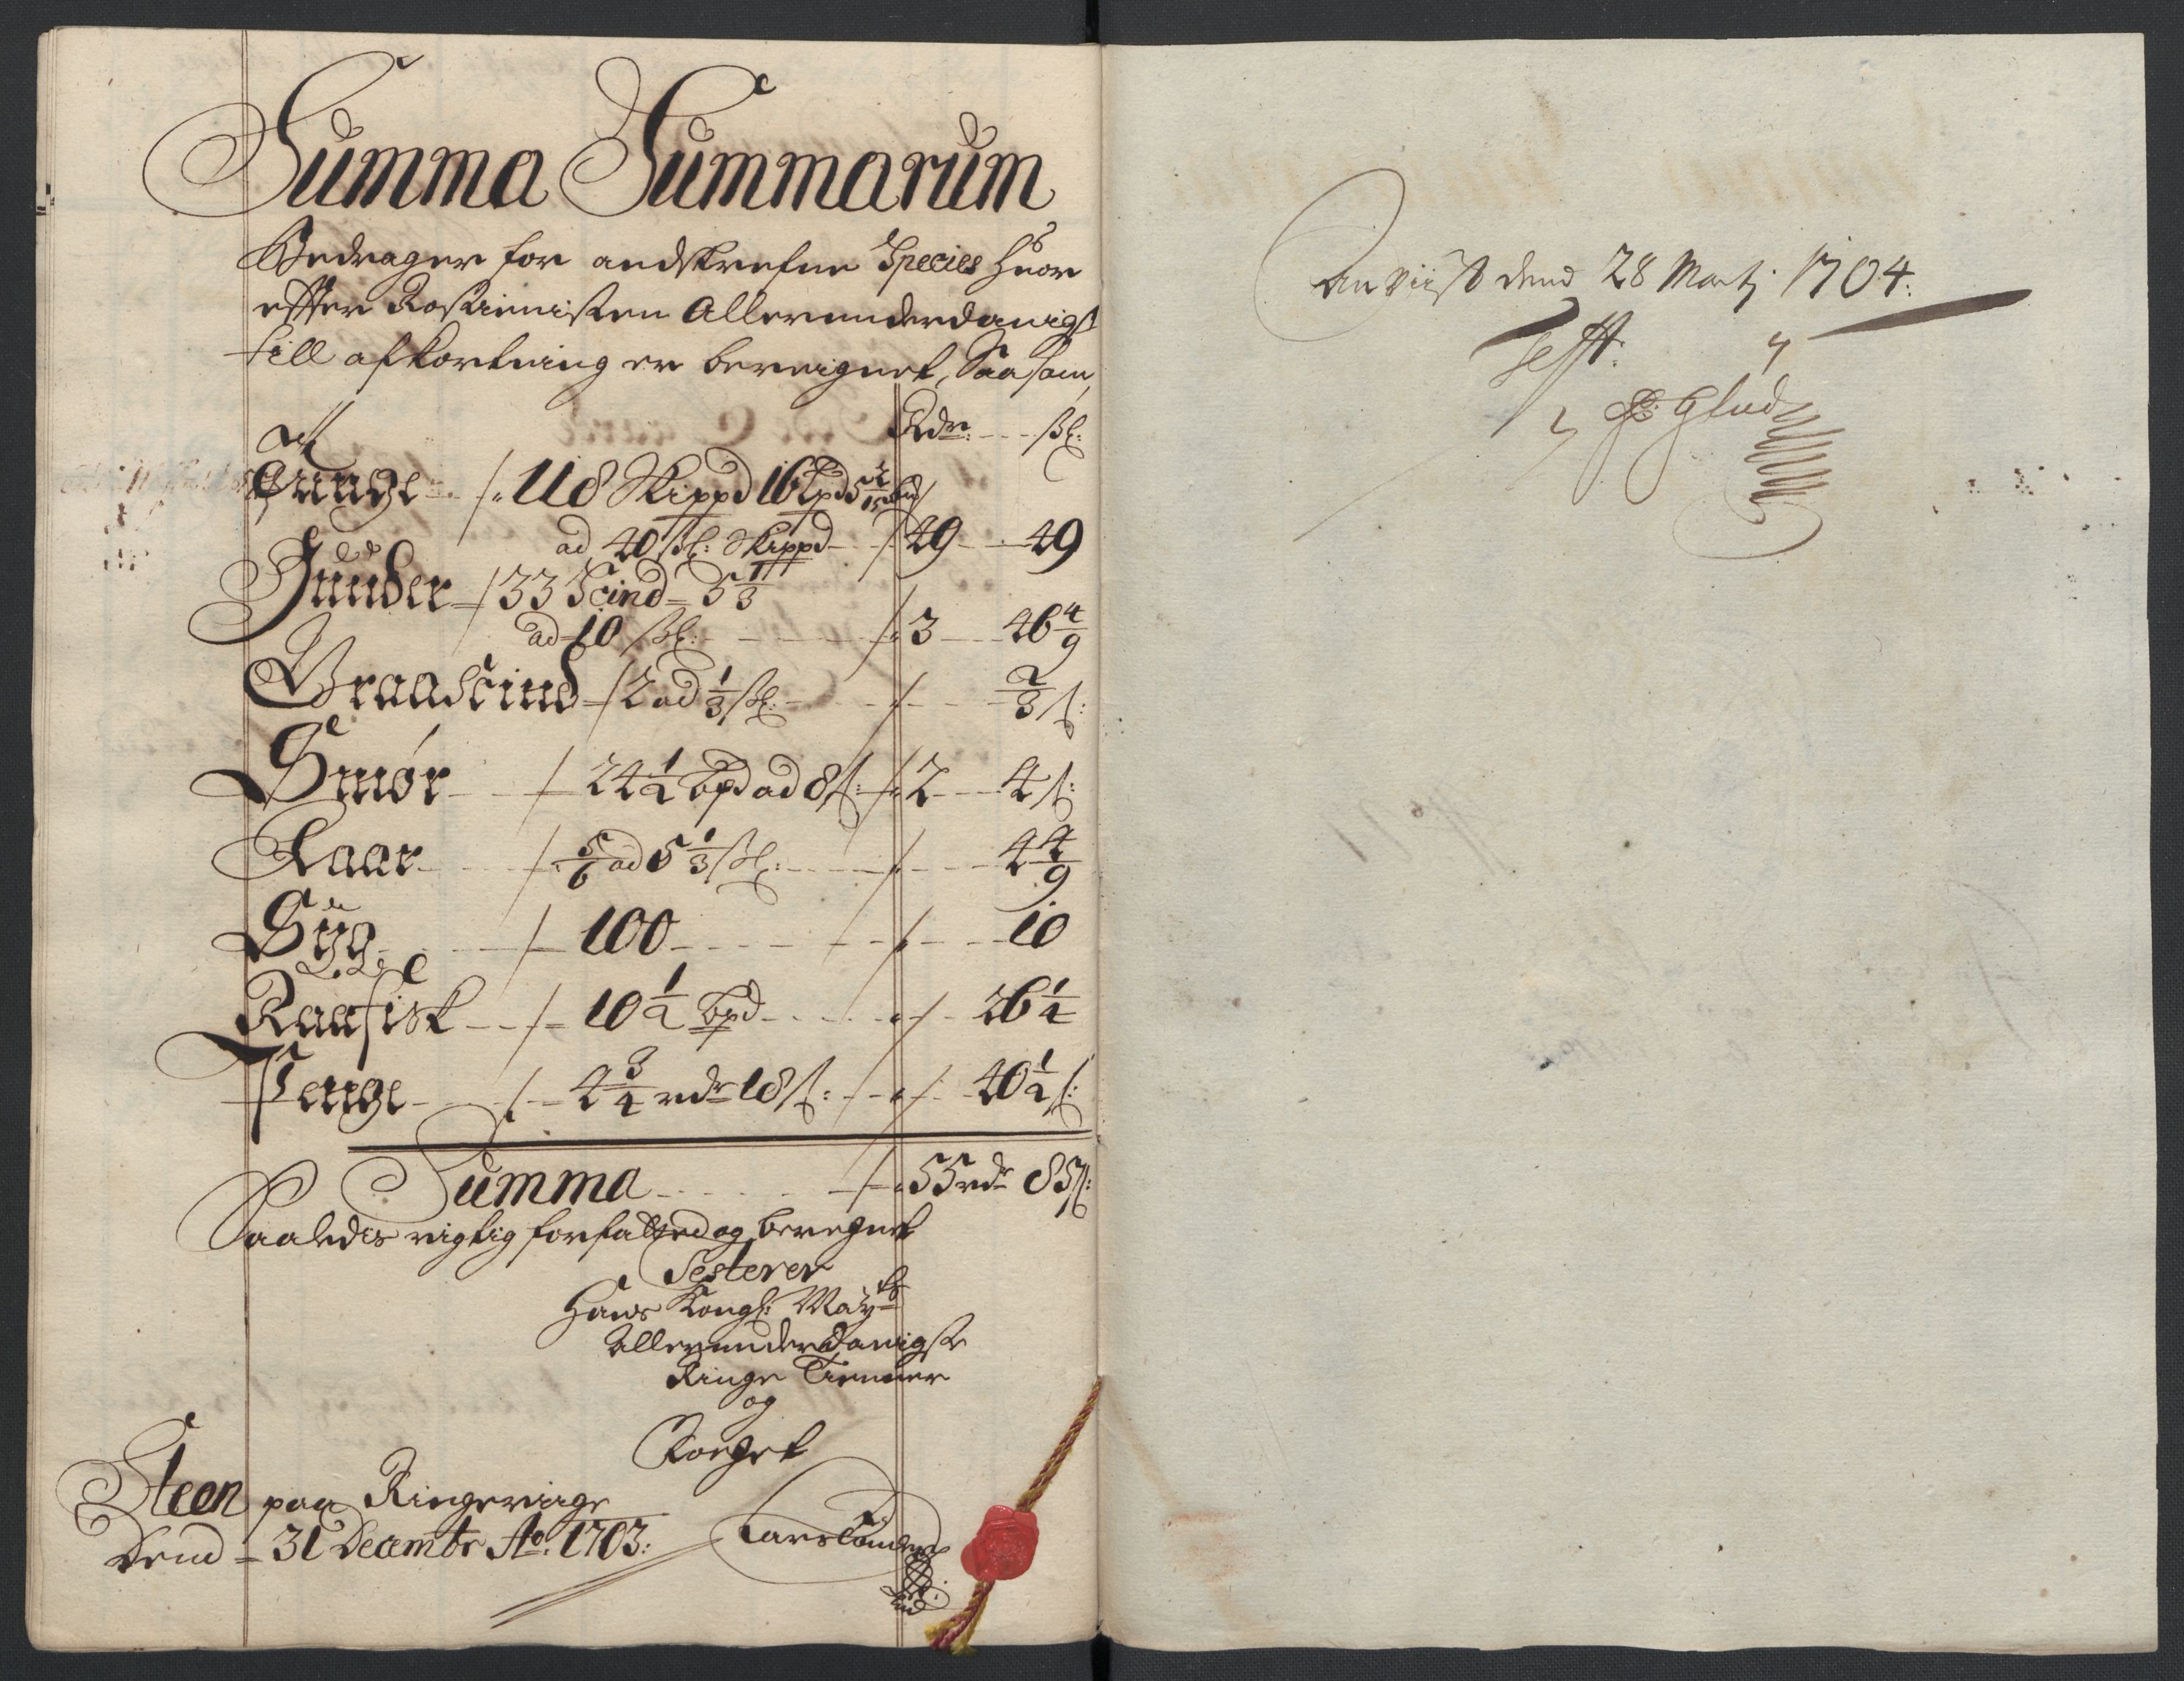 Summa Summarum
Bedrager for andskrefne Species huor
effter Rostienisten Allerunderdanigst
till afkortning er bereignet, Saasom,
Rdr: ß:
Tunge 118 Skippd 16 Lpd 5
ad 40 ß: Skippd 49 49
Huuder 33 Scind 5 1/3
ad 10 ß: 3 46 4/9
Graaschind 2 ad 1/3 ß: 2/3 ß:
Smør 24 1/2 bpd ad 8 ß: 2 4 ß:
Faar 5/6 ad 5 1/3 ß: 4 4/9
Gryn 100 10
Raafisk 10 1/2 bpd 26 1/4
Penge 4 3/4 rdr 18 ß: 40 1/2 ß:
Summa 55 rdr 85 ß:
Saaledis rigtig forfatted og beregnet
Testerer
Hans Kongl: May:ts
Allerunderdanigste
Ringe Tienner
og
Foeget
Steen paa Ringeriige
Dend 31 Decembr Ao: 1703:
Anviist dend 28 Martj 1704:
Test:
Glud